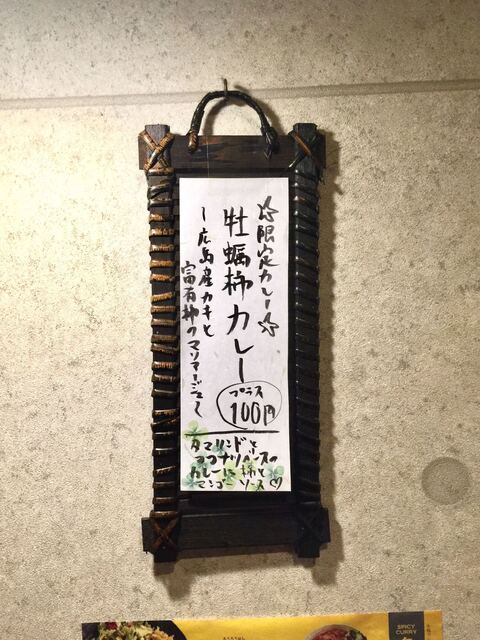 ☆限定カレー☆
牡蠣柿カレー
～広島産カキと
富有柿のマリアージュ～
プラス
100円
タマリンドと
ココナツベースの
カレーに柿と
マンゴーソース♡
SPICY
CURRY